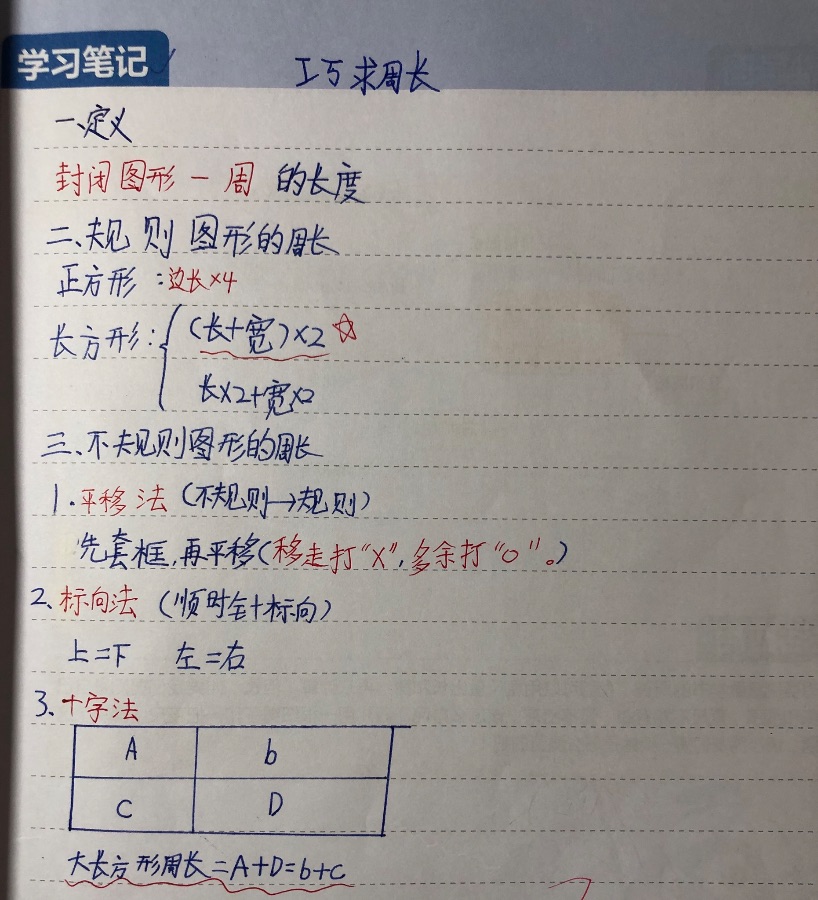 学习笔记
工巧求周长
一、定义
封闭图形一周的长度
二、规则图形的周长
正方形：边长×4
长方形：{(长+宽)×2☆
长×2+宽×2
三、不规则图形的周长
1.平移法（不规则→规则）
先套框,再平移(移走打“X”,多余打“O”。)
2、标向法（顺时针标向）
上=下 左=右
3、十字法
A b
C D
大长方形周长=A+D=b+C